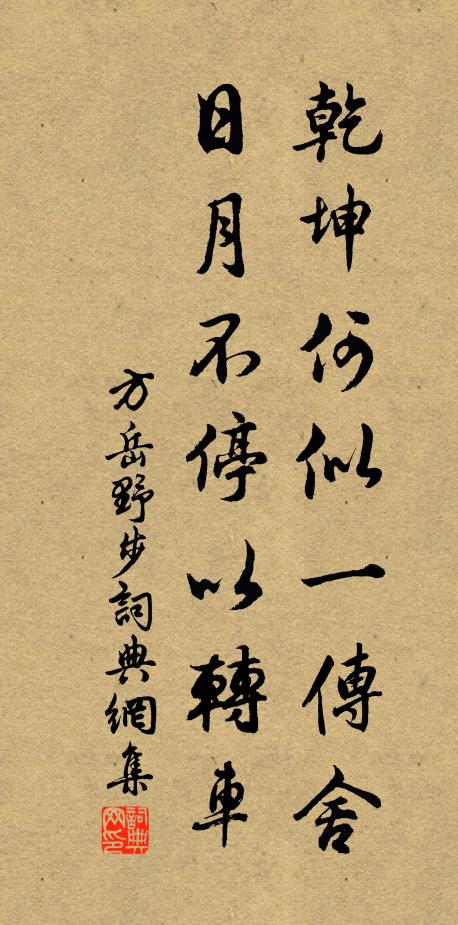 乾坤何似一傳舍
日月不停以轉車
方岳野步詞典網集
詞典網印